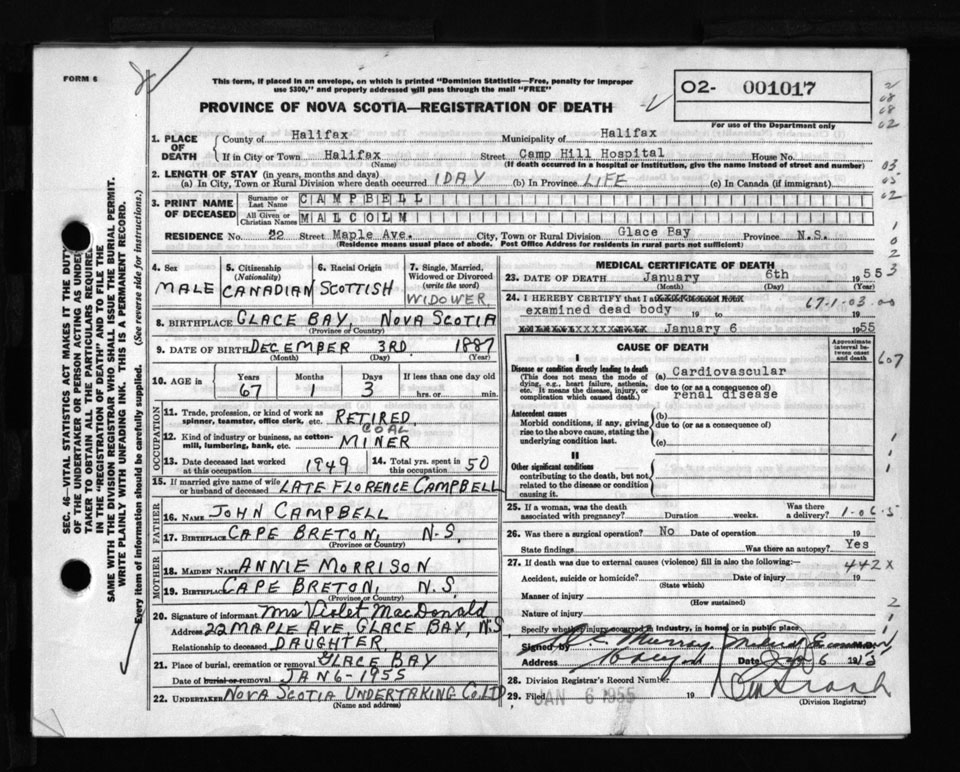 FORM 6
This form, if placed in an envelope, on which is printed "Dominion Statistics—Free, penalty for improper
use $300," and properly addressed will pass through the mail "FREE"
PROVINCE OF NOVA SCOTIA—REGISTRATION OF DEATH
02- 001017
For use of the Department only
1. PLACE OF DEATH County of Halifax Municipality of Halifax
If in City or Town Halifax (Name) Street Camp Hill Hospital House No.
(If death occurred in a hospital or institution, give the name instead of street and number)
2. LENGTH OF STAY (in years, months and days)
(a) In City, Town or Rural Division where death occurred 1 DAY (b) In Province LIFE (c) In Canada (if immigrant)
3. PRINT NAME OF DECEASED Surname or Last Name CAMPBELL
All Given or Christian Names MALCOLM
RESIDENCE No. 22 Street Maple Ave. City, Town or Rural Division Glace Bay Province N.S.
(Residence means usual place of abode. Post Office Address for residents in rural parts not sufficient)
4. Sex MALE
5. Citizenship (Nationality) CANADIAN
6. Racial Origin SCOTTISH
7. Single, Married, Widowed or Divorced (write the word) WIDOWER
8. BIRTHPLACE GLACE BAY, NOVA SCOTIA
(Province or Country)
9. DATE OF BIRTH DECEMBER 3RD. 1887
(Month) (Day) (Year)
10. AGE in Years 67 Months 1 Days 3 If less than one day old hrs. or min.
OCCUPATION
11. Trade, profession, or kind of work as spinner, teamster, office clerk, etc. RETIRED
12. Kind of industry or business, as cotton-mill, lumbering, bank, etc. COAL MINER
13. Date deceased last worked at this occupation 1949 14. Total yrs. spent in this occupation 50
15. If married give name of wife or husband of deceased LATE FLORENCE CAMPBELL
FATHER
16. NAME JOHN CAMPBELL
17. BIRTHPLACE CAPE BRETON, N.S.
(Province or Country)
MOTHER
18. MAIDEN NAME ANNIE MORRISON
19. BIRTHPLACE CAPE BRETON, N.S.
(Province or Country)
20. Signature of informant Mrs Violet MacDonald
Address 22 MAPLE AVE, GLACE BAY, N.S
Relationship to deceased DAUGHTER
21. Place of burial, cremation or removal GLACE BAY
Date of burial or removal JAN 6-1955
22. UNDERTAKER NOVA SCOTIA UNDERTAKING CO. LTD
(Name and address)
MEDICAL CERTIFICATE OF DEATH
23. DATE OF DEATH January 6th 1955
(Month) (Day) (Year)
24. I HEREBY CERTIFY that I
examined dead body 19 to 19
January 6 1955
67-1-03
CAUSE OF DEATH
Approximate interval between onset and death
I
Disease or condition directly leading to death
(This does not mean the mode of dying, e.g., heart failure, asthenia, etc. It means the disease, injury, or complication which caused death.)
(a) Cardiovascular
due to (or as a consequence of)
renal disease
Antecedent causes
Morbid conditions, if any, giving rise to the above cause, stating the underlying condition last.
(b)
due to (or as a consequence of)
(c)
II
Other significant conditions
contributing to the death, but not related to the disease or condition causing it.
607
25. If a woman, was the death associated with pregnancy? Duration weeks. Was there a delivery?
1-06-5
26. Was there a surgical operation? No Date of operation 19
State findings Was there an autopsy? Yes
27. If death was due to external causes (violence) fill in also the following:—
442X
Accident, suicide or homicide? Date of injury 19
(State which)
Manner of injury
(How sustained)
Nature of injury
Specify whether injury occurred in industry, in home or in public place
Signed by Murray
Address Date 6 19
28. Division Registrar's Record Number
29. Filed JAN 6 1955 19
(Division Registrar)
SEC. 46—VITAL STATISTICS ACT MAKES IT THE DUTY
OF THE UNDERTAKER OR PERSON ACTING AS UNDER-
TAKER TO OBTAIN ALL THE PARTICULARS REQUIRED
IN THE "REGISTRATION OF DEATH" AND TO FILE THE
SAME WITH THE DIVISION REGISTRAR WHO SHALL ISSUE THE BURIAL PERMIT.
WRITE PLAINLY WITH UNFADING INK. THIS IS A PERMANENT RECORD.
Every item of information should be carefully supplied. (See reverse side for instructions.)